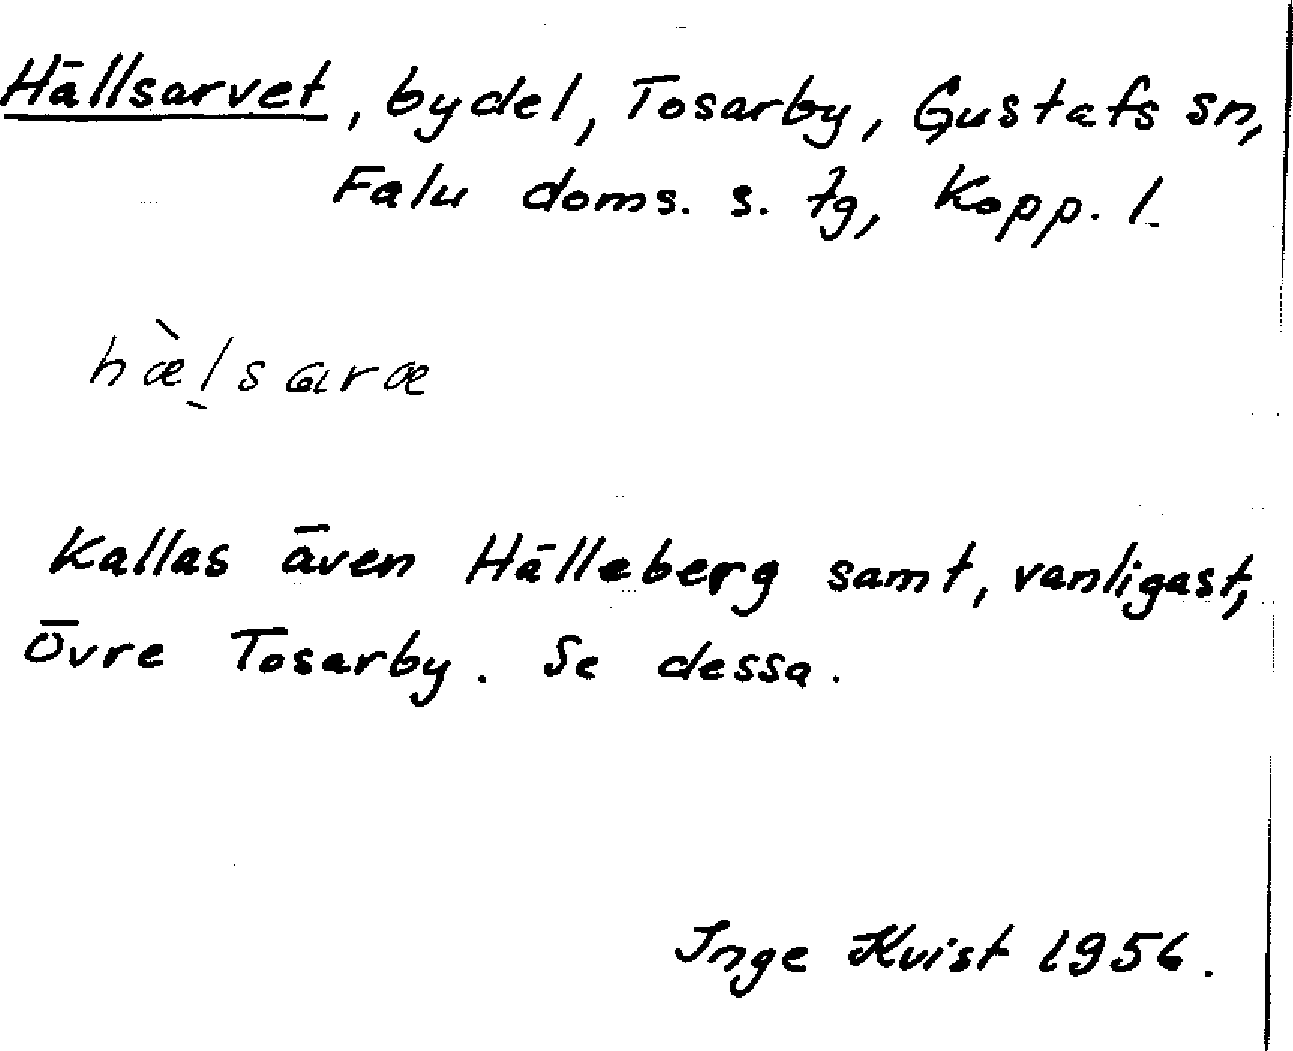 Hällsarvet, bydel, Tosarby, Gustafs sn,
Falu doms. s. tg, Kopp. l.
hæ̀l̠saræ
Kallas även Hälleberg samt, vanligast,
Övre Tosarby. Se dessa.
Inge Kvist 1956.